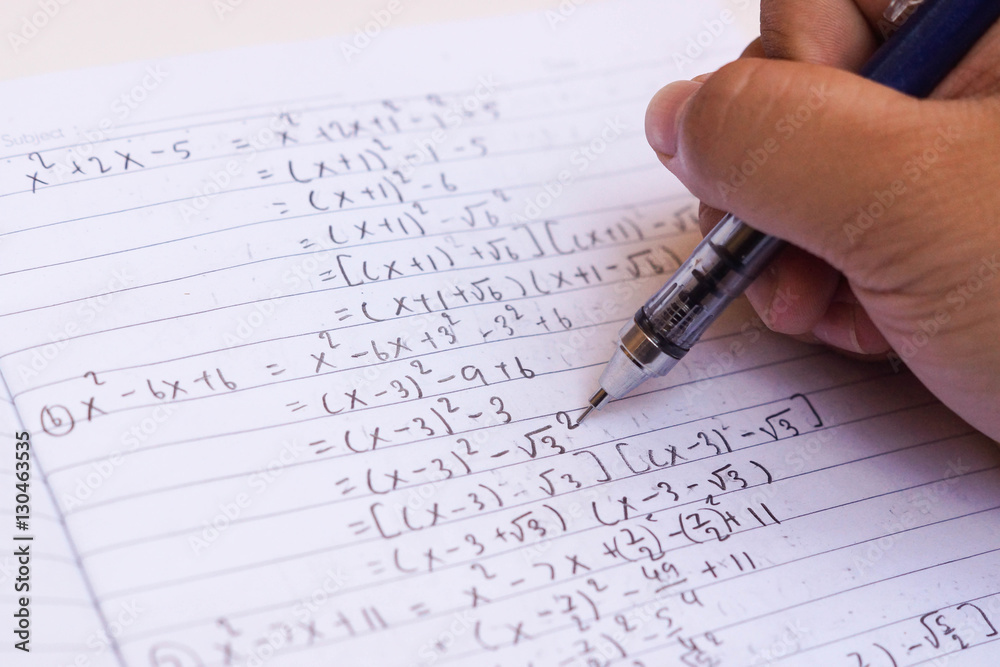 Subject
x² + 2x - 5 = x² + 2x + 1² - 1² - 5
= (x+1)² - 1 - 5
= (x+1)² - 6
= (x+1)² - √6²
= [(x+1)² + √6] [(x+1) - √
= (x+1+√6)(x+1-√6)
(b) x² - 6x + 6 = x² - 6x + 3² - 3² + 6
= (x-3)² - 9 + 6
= (x-3)² - 3
= (x-3)² - √3²
= [(x-3) - √3] [(x-3)² - √3]
= (x-3+√3) (x-3-√3)
x² - 7x + 11 = x² - 7x + (7/2)² - (7/2)² + 11
= (x - 7/2)² - 49/4 + 11
7/2)² - 5/4
) - √5/2²)]
Adobe Stock | #130463535